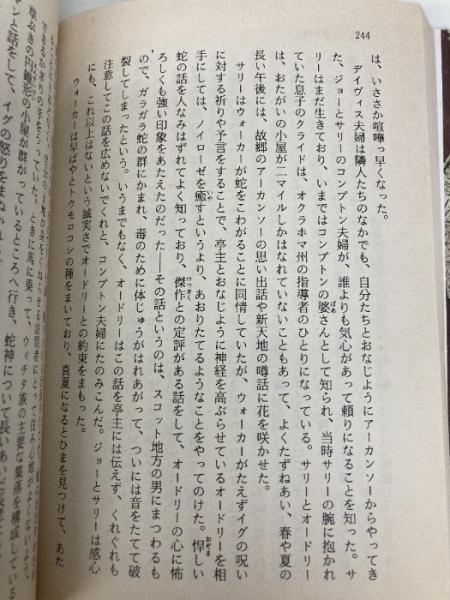 244
は、いささか喧嘩っ早くなった。
デイヴィス夫婦は隣人たちのなかでも、自分たちとおなじようにアーカンソーからやってき
た、ジョーとサリーのコンプトン夫婦が、誰よりも気心があって頼りになることを知った。サ
リーはまだ生きており、いまではコンプトンの婆さんとして知られ、当時サリーの腕に抱かれ
ていた息子のクライドは、オクラホマ州の指導者のひとりになっている。サリーとオードリー
は、おたがいの小屋が二マイルしかはなれていないこともあって、よくたずねあい、春や夏の
長い午後には、故郷のアーカンソーの思い出話や新天地の噂話に花を咲かせた。
サリーはウォーカーが蛇をこわがることに同情していたが、ウォーカーがたえずイグの呪い
に対する祈りや予言をすることで、亭主とおなじように神経を高ぶらせているオードリーを相
手にしては、ノイローゼを癒すというより、あおりたてるようなことをやってのけた。悍しい
蛇の話を人なみはずれてよく知っており、傑作との定評がある話をして、オードリーの心に怖
ろしくも強い印象をあたえたのだった――その話というのは、スコット地方の男にまつわるも
ので、ガラガラ蛇の群にかまれ、毒のために体じゅうがはれあがって、ついには音をたてて破
裂してしまったという。いうまでもなく、オードリーはこの話を亭主には伝えず、くれぐれも
注意してこの話を広めないでくれと、コンプトン夫婦にたのみこんだ。ジョーとサリーは感心
にも、これ以上はないという誠実さでオードリーとの約束をまもった。
ウォーカーは早ばやとトウモロコシの種をまいており、真夏になるとひまを見つけて、あた
草ぶきの円錐形の小屋が群がっているところへ行き、
マンと話をして、イグの怒りをまぬ